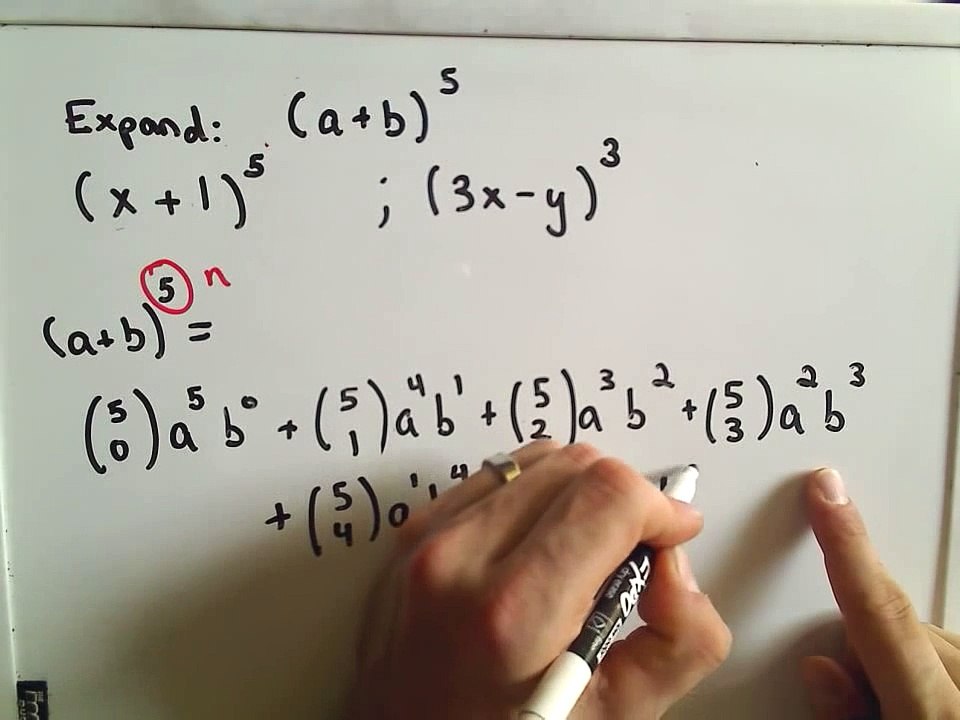 Expand: (a+b)^5
(x+1)^5 ; (3x-y)^3
(a+b)^5 n =
(5 0) a^5 b^0 + (5 1) a^4 b^1 + (5 2) a^3 b^2 + (5 3) a^2 b^3
+ (5 4) a^1 b^4
EXPO